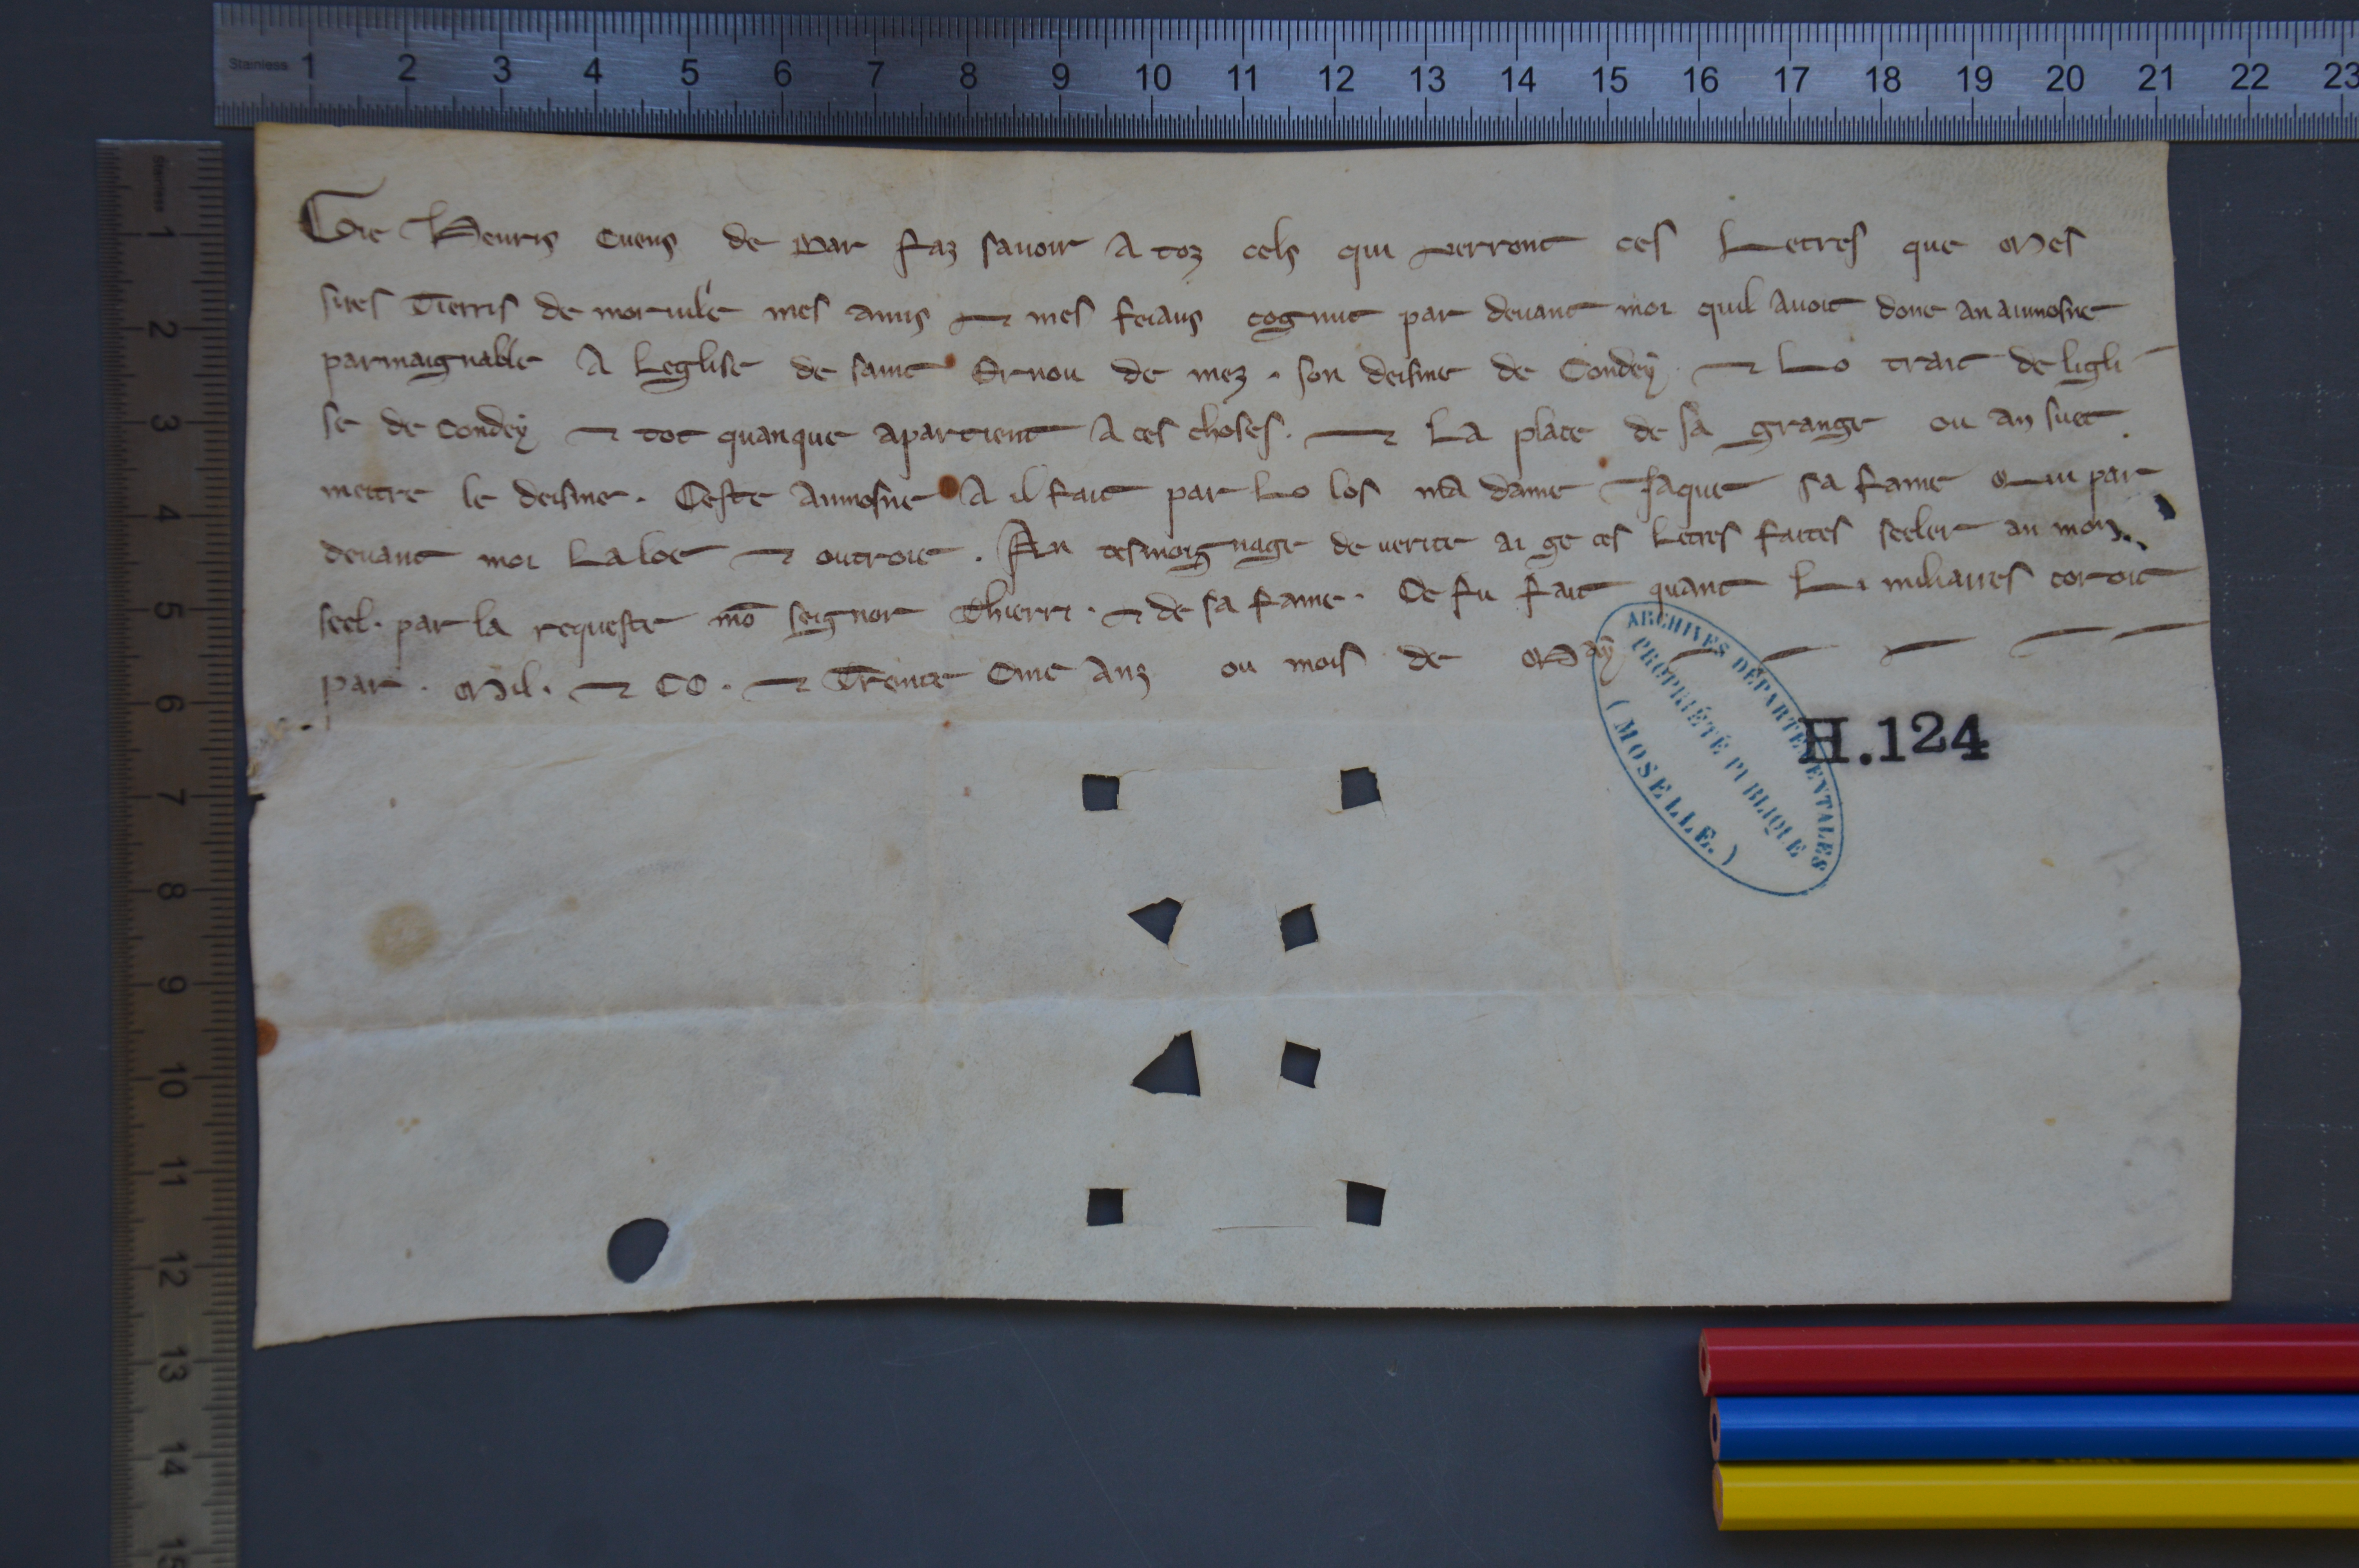 Gie Henris Cuens de Bar faz savoir A toz cels qui verront ces Letres que Mes
sires Tierris de moruile mes amis ⁊ mes feiaus cognut par devant moi quil avoit done an aumosne
parmaignable A Leglise de saint Ernou de mez . son deisme de Condey ⁊ Lo trait de ligli
se de Condey ⁊ tot quanque apartient A ces choses . ⁊ La place de sa grange ou an suet
mettre le deisme . Ceste Aumosne A il fait par Lo los ma dame Isaque sa fame Qui par
devant moi La loe ⁊ outroie . An tesmoignage de verite ai ge ces Letres faites seeler an mon
seel . par la requeste mō seignor Thierri . ⁊ de sa fame . Ce fu fait quant Li miliaires coroit
par . Mil . ⁊ CC . ⁊ Trente Cinc Anz ou mois de May
ARCHIVES DÉPARTEMENTALES
PROPRIÉTÉ PUBLIQUE
(MOSELLE.)
H.124
Stainless 1 2 3 4 5 6 7 8 9 10 11 12 13 14 15 16 17 18 19 20 21 22 23
Stainless 1 2 3 4 5 6 7 8 9 10 11 12 13 14 15